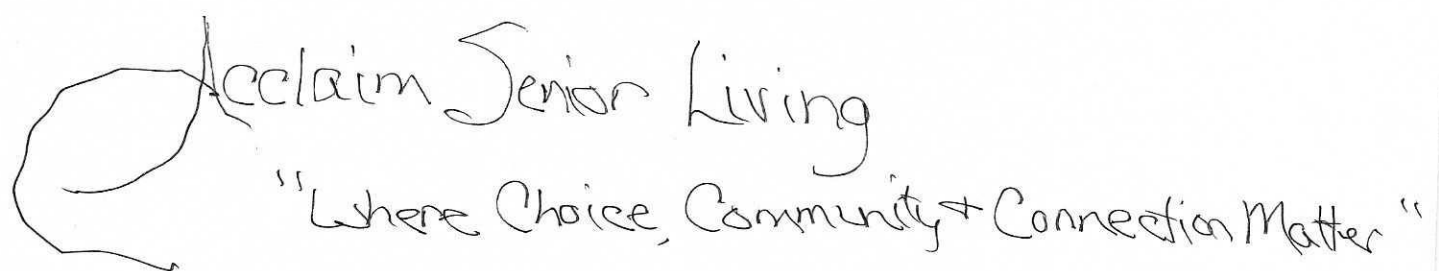 Acclaim Senior Living
"Where Choice, Community + Connection Matter"